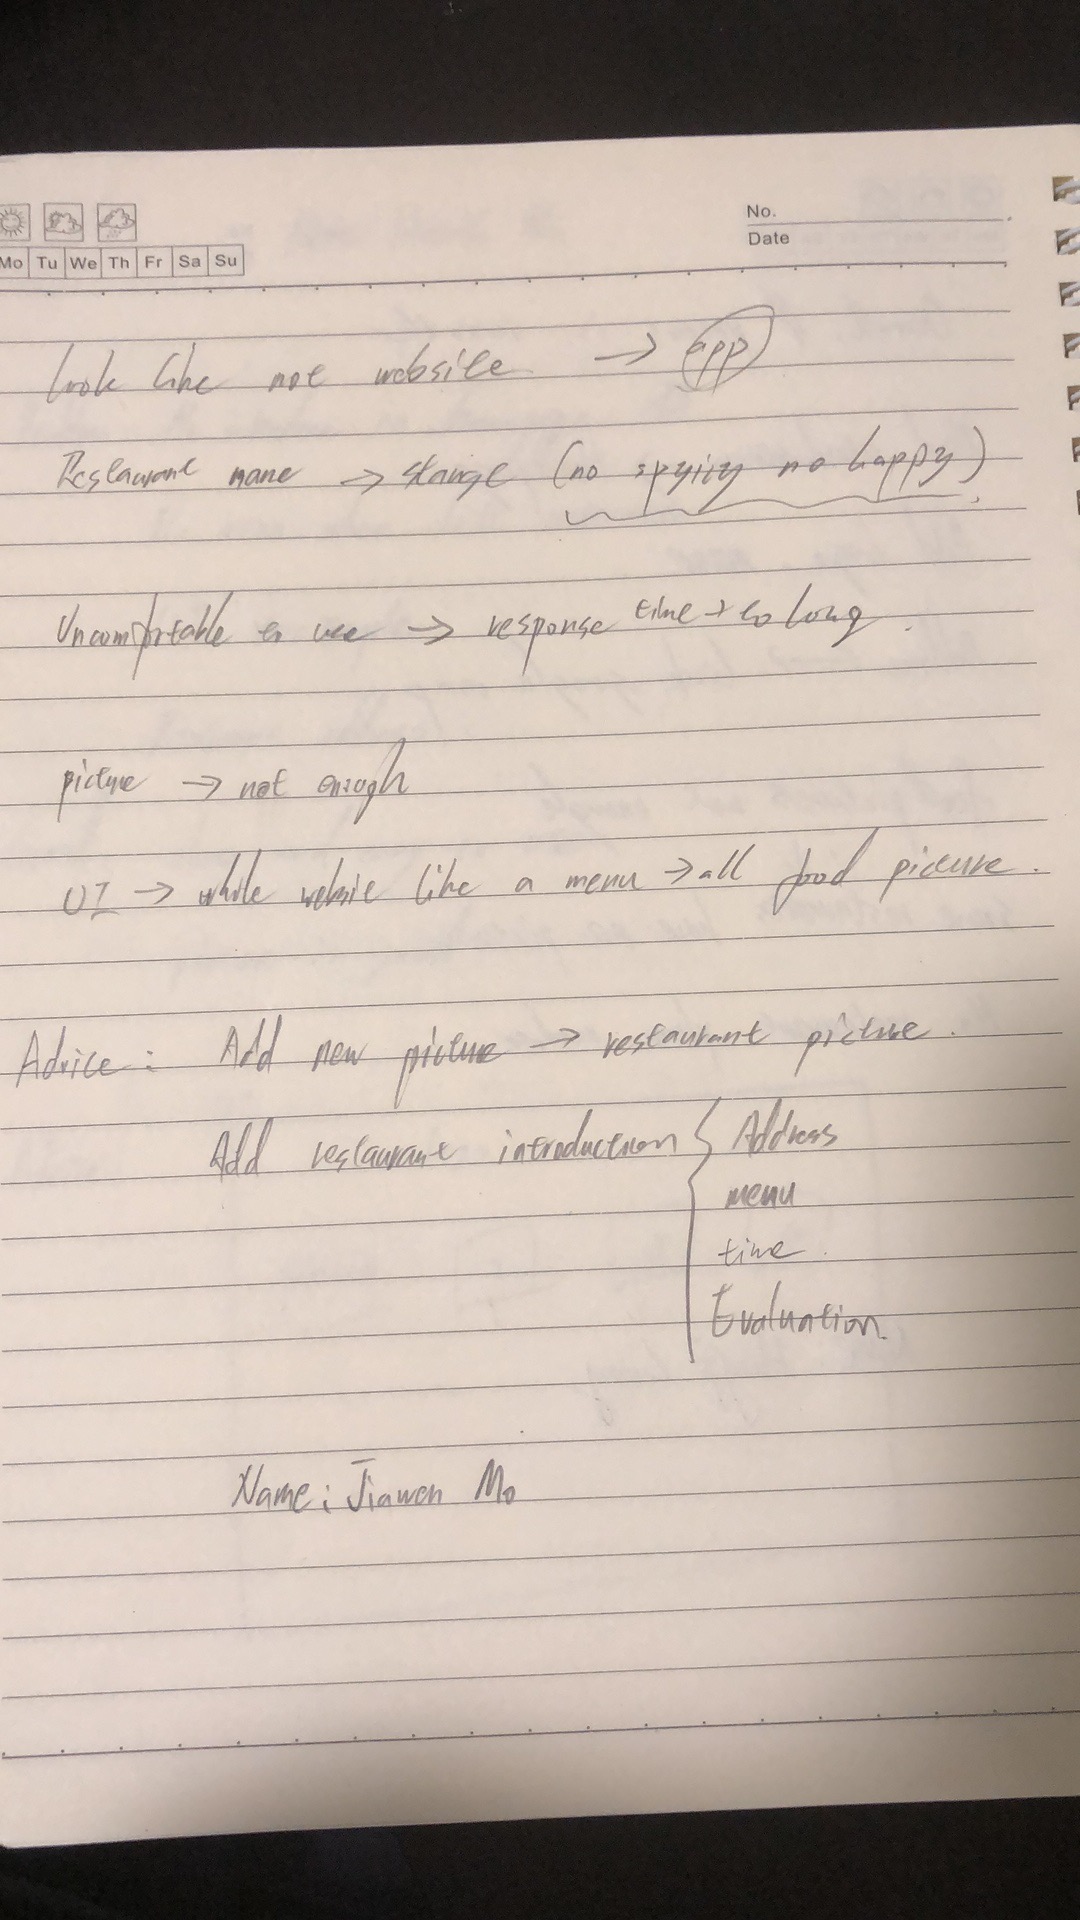 No.
Date
Mo Tu We Th Fr Sa Su
look like not website → app
Restaurant name → stange (no spyiiy no happy)
Uncomfortable to use → response time → so long.
picture → not enough
UI → while websie like a menu → all food picture.
Advice: Add new picture → restaurant picture.
Add restaurant introduction { Address
menu
time.
Evaluation.
Name: Jiawen Mo